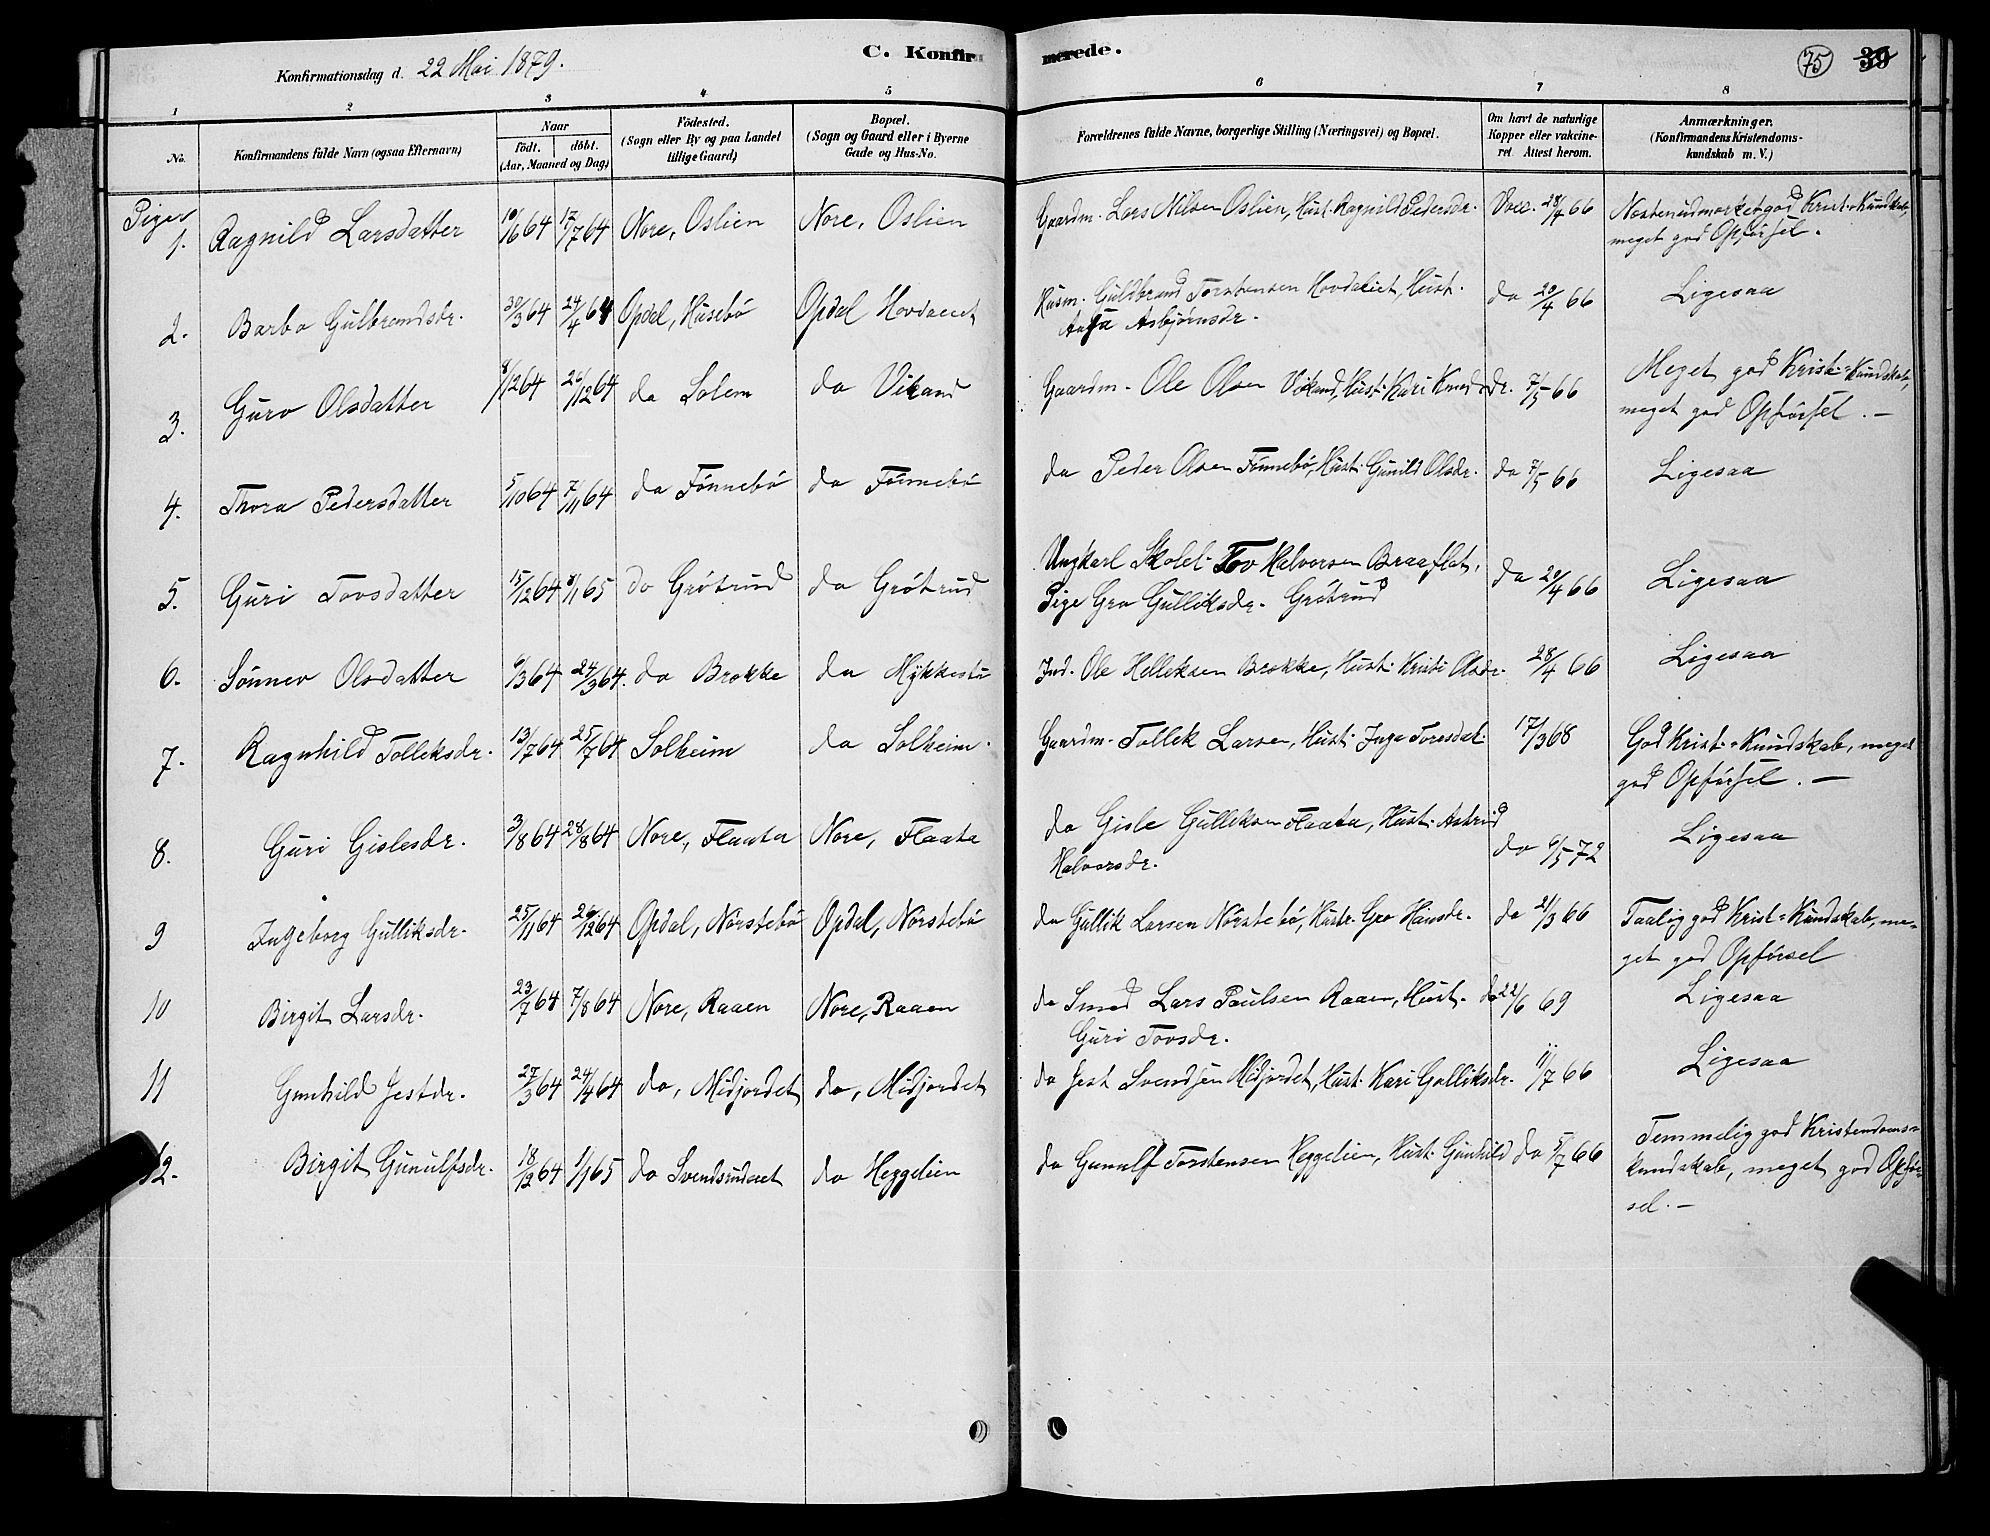 Konfirmationsdag d. 22 Mai 1879.
C. Konfirmerede.
75 39
1 2 3 4 5 6 7 8
No.
Konfirmandens fulde Navn (ogsaa Efternavn)
Naar
født. døbt.
(Aar, Maaned og Dag)
Födested.
(Sogn eller By og paa Landet
tillige Gaard)
Bopæl.
(Sogn og Gaard eller i Byerne
Gade og Hus-No.
Forældrenes fulde Navne, borgerlige Stilling (Næringsvei) og Bopæl.
Om havt de naturlige
Kopper eller vakcine-
ret. Attest herom.
Anmærkninger.
(Konfirmandens Kristendoms-
kundskab m. V.)
Piger
1. Ragnild Larsdatter 10/6 64 17/7 64 Nore, Oslien Nore, Oslien Gaardm. Lars Nilsen Oslien, Hust. Ragnild Pedersdr. Vacc. 28/4 66 Næstenudmærket god Krist.-Kundskab,
meget god Opførsel.
2. Barbo Gulbrandsdr. 30/3 64 24/4 64 Opdal, Husebö Opdal Hovdaeiet Husm. Guldbrand Torstensen Hovdaeiet, Hust.
Asbjørnsdr. do 20/4 66 Ligesaa
3. Guro Olsdatter 8/12 64 26/12 64 do Solem do Vikand Gaardm. Ole Olsen Vikand, Hust. Kari Knudsdr. 7/5 66 Meget god Krist.-Kundskab,
meget god Opførsel. —
4. Thora Pedersdatter 5/10 64 7/11 64 do Fönnebö do Fönnebö do Peder Olsen Fönnebö, Hust. Gunild Olsdr. do 7/5 66 Ligesaa
5. Guri Tovsdatter 15/12 64 8/1 65 do Grötrud do Grötrud Ungkarl Skolel. Tov Halvorsen Braaflat,
Pige Gro Gulliksdr. Grötrud do 20/4 66 Ligesaa
6. Sönnev Olsdatter 6/3 64 24/3 64. do Brokke do Mykkestu Ind. Ole Helleksen Brokke, Hust. Kristi Olsdr. 28/4 66 Ligesaa
7. Ragnhild Tolleksdr. 13/7 64 25/7 64 Solheim do Solheim. Gaardm. Tollek Larsen, Hust. Inga Toresdat. 17/3 68 God Krist.-Kundskab, meget
god Opførsel. —
8. Guri Gislesdr. 3/8 64 28/8 64 Nore, Flaata Nore, Flaata do Gisle Gulliksen Flaata, Hust. Astrid
Halvorsdr. do 6/5 72 Ligesaa
9 Ingeborg Gulliksdr. 25/11 64 26/12 64 Opdal, Nörstebö Opdal, Nörstebö do Gullik Larsen Nörstebö, Hustr. Gro Hansdr. do 21/3 66 Taalig god Krist-Kundskab, me-
get god Opførsel
10 Birgit Larsdr. 23/7 64 7/8 64 Nore, Raaen Nore, Raaen do Smed Lars Paulsen Raaen, Hust.
Guri Tovsdr. do 22/6 69 Ligesaa
11 Gunhild Jestdr. 27/3 64 24/4 64 do, Midjordet do, Midjordet do Jest Svendsen Midjordet, Hust. Kari Gulliksdr. 11/7 66 Ligesaa
12. Birgit Gunulfsdr. 18/12 64 1/1 65 do Svendsrudeiet do Heggelien do Gunulf Torstensen Heggelien, Hust. Gunhild do 5/7 66 Temmelig god Kristendoms-
kundskab, meget god Opfør-
sel. —